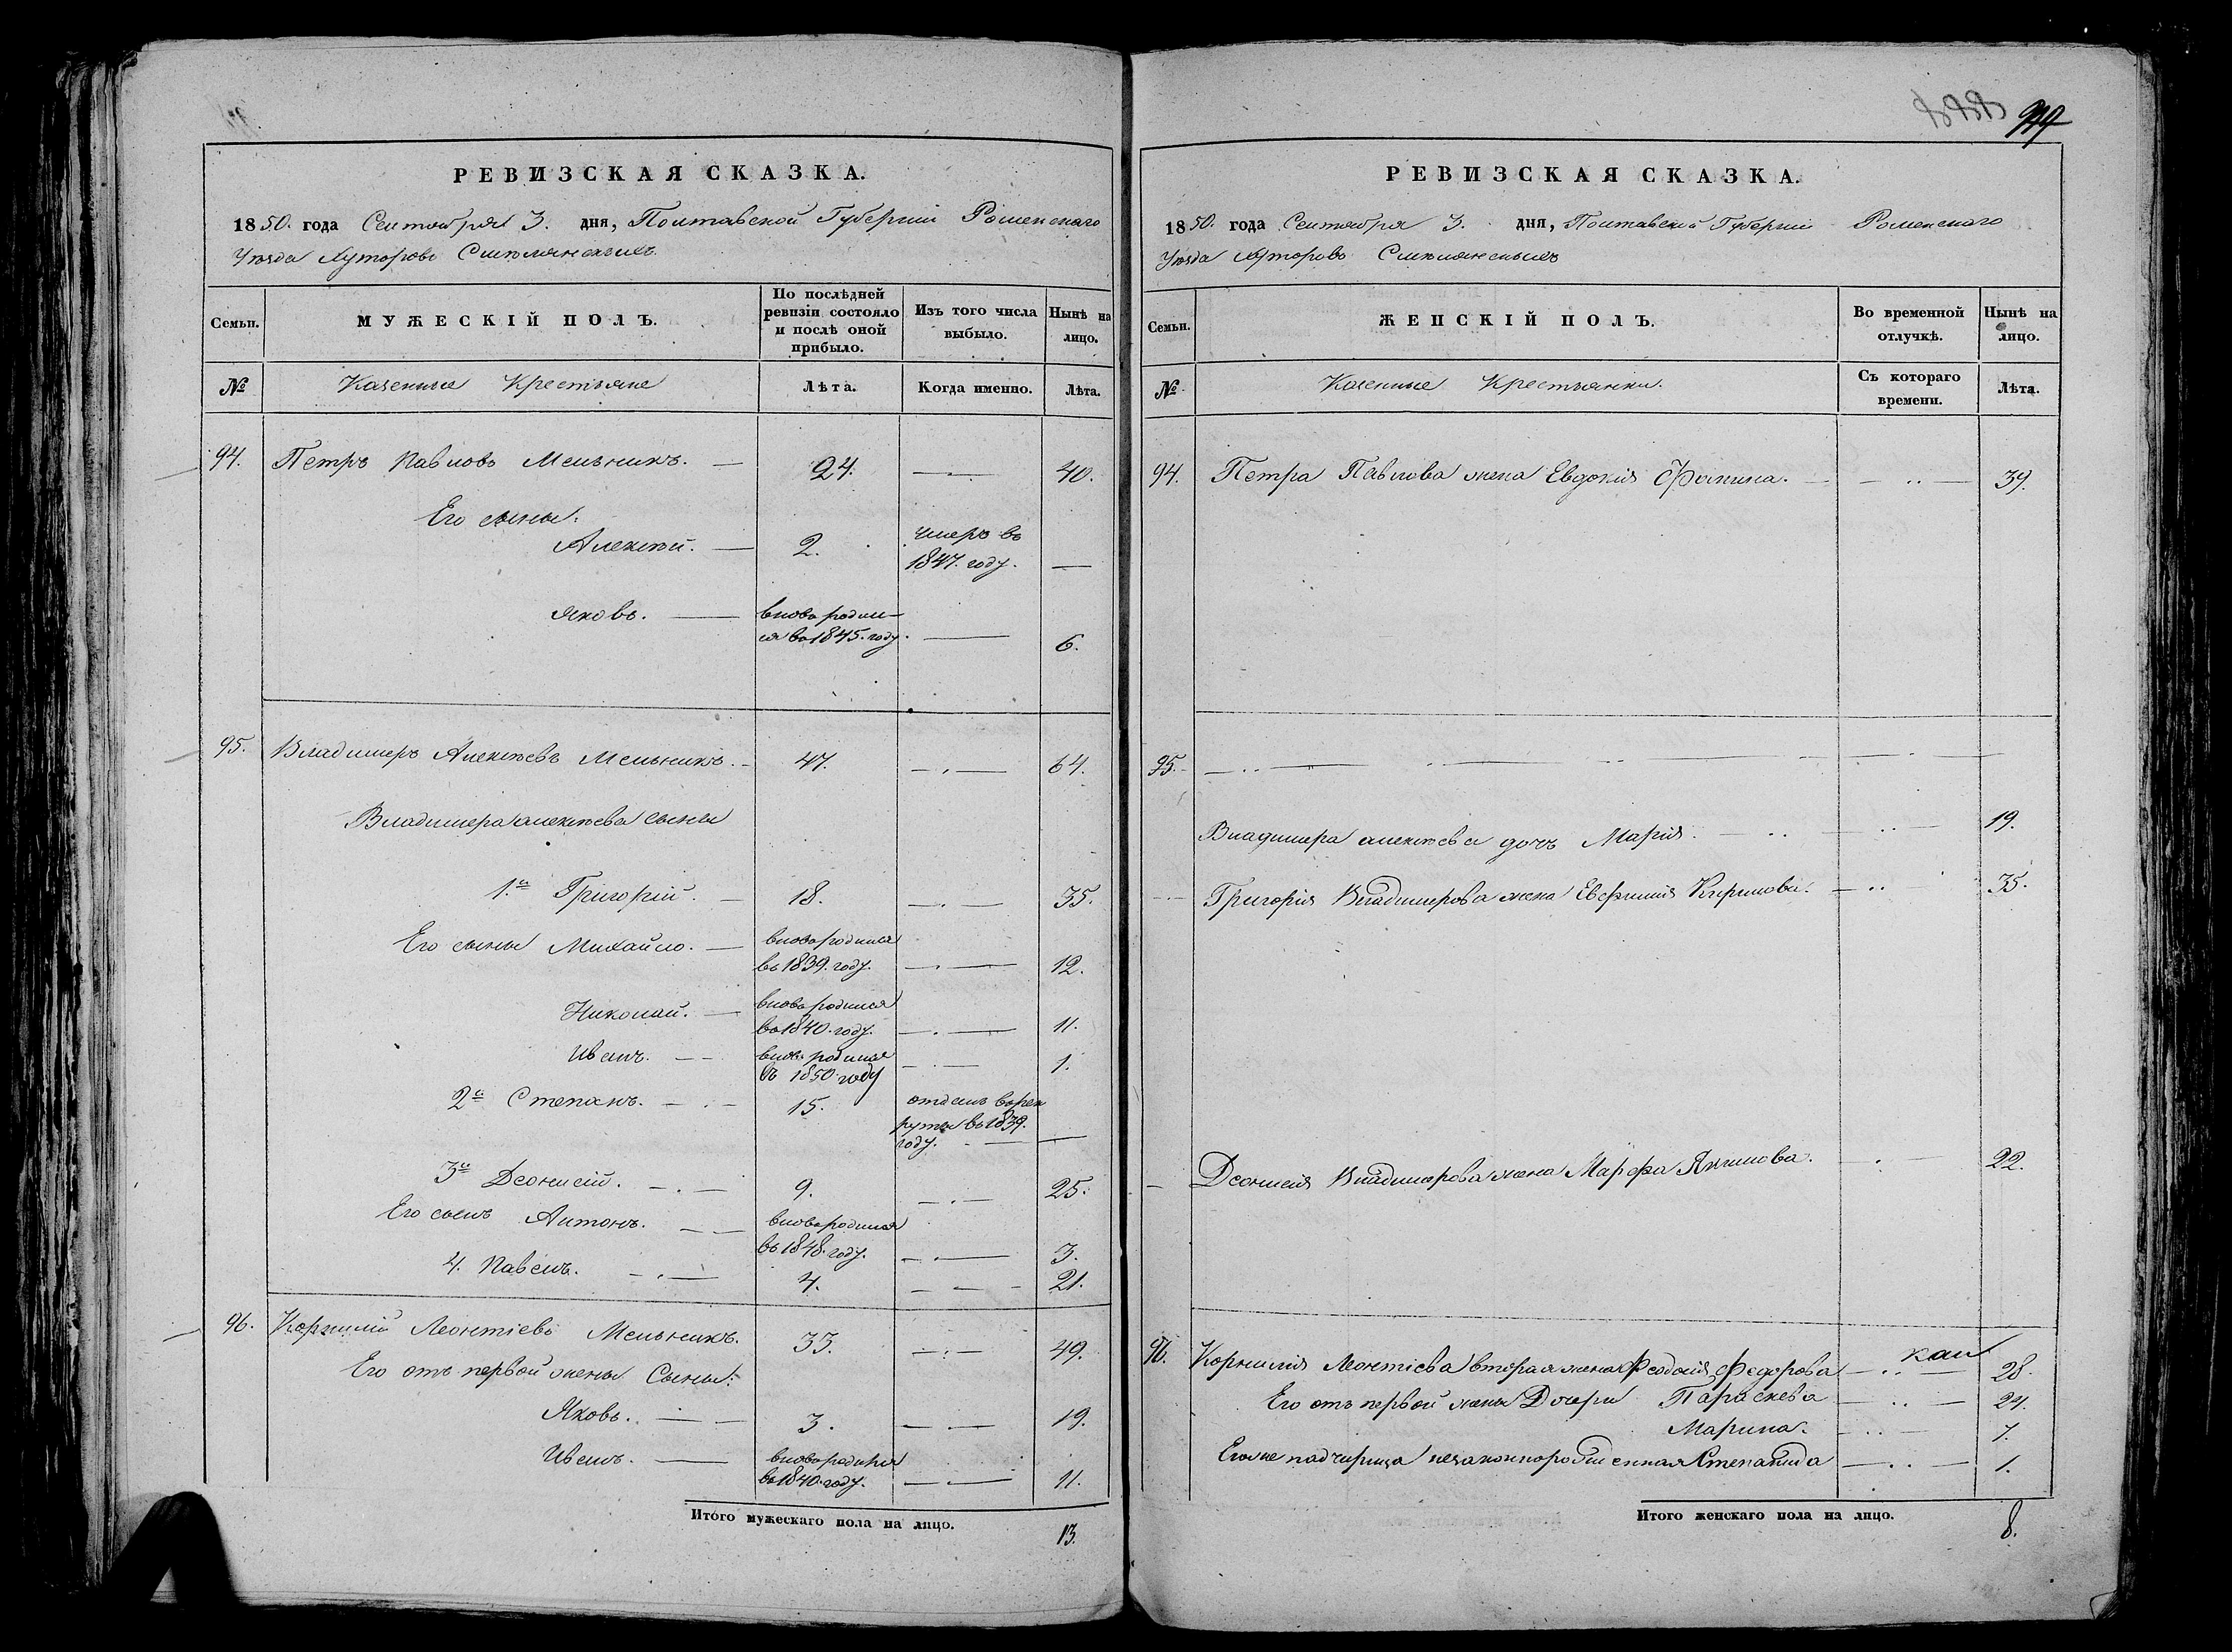 РЕВИЗСКАЯ СКАЗКА.
1850. года Сентября 3. дня, Полтавской Губернии Роменскаго
Уѣзда Хуторовъ Смѣлянскихъ
Семьи.
МУЖЕСКІЙ ПОЛЪ.
По послѣдней ревизіи состояло и послѣ оной прибыло.
Изъ того числа выбыло.
Нынѣ на лицо.
№ Казенные Крестьяне Лѣта. Когда именно. Лѣта.
94. Петръ Павловъ Мельникъ. — 24. — 40.
Его сыны:
Алексѣй. — 2. умеръ въ
1847. году. —
Яковъ. — вновь родил-
ся въ 1845. году. — 6.
95. Владимеръ Алексѣевъ Мельникъ. — 47. — 64.
Владимера алексѣева сыны
1.й Григорій. — 18. — 35.
Его сыны Михайло. — вновь родился
въ 1839. году. — 12.
Николай. — вновь родился
въ 1840. году. — 11.
Иванъ. — вновь родился
въ 1850. году — 1.
2й Степанъ. — 15. отданъ въ рек
руты въ 1839.
году. —
3й Деонисій. — 9. — 25.
Его сынъ Антонъ. — вновь родился
въ 1848. году. — 3.
4. Павелъ. — 4. — 21.
96. Корнилій Леонтіевъ Мельникъ. 33. — 49.
Его отъ первой жены Сыны:
Яковъ. — 3. — 19.
Иванъ. — вновь родился
въ 1840. году. — 11.
Итого мужескаго пола на лицо. 13.
РЕВИЗСКАЯ СКАЗКА.
1850. года Сентября 3. дня, Полтавской Губернии Роменскаго
Уѣзда Хуторовъ Смѣлянскихъ
Семьи.
ЖЕНСКІЙ ПОЛЪ.
Во временной отлучкѣ.
Нынѣ на лицо.
№ Казенные Крестьянки. Съ котораго времени. Лѣта.
94. Петра Павлова жена Евдокія Фомина. — 39.
95. —
Владимера алексѣева дочь Марія. — 19.
Григорія Владимерова жена Евфимія Кирилова. — 35.
Деонисія Владимерова жена Марфа Якимова. — 22.
96. Корнилія Леонтіева вторая жена Феодосія Федорова — 28.
Его отъ первой жены Дочери Параскева — 24.
Марина. — 7.
Его же падчирица незаконнорожденная Степанида — 1.
Итого женскаго пола на лицо. 8.